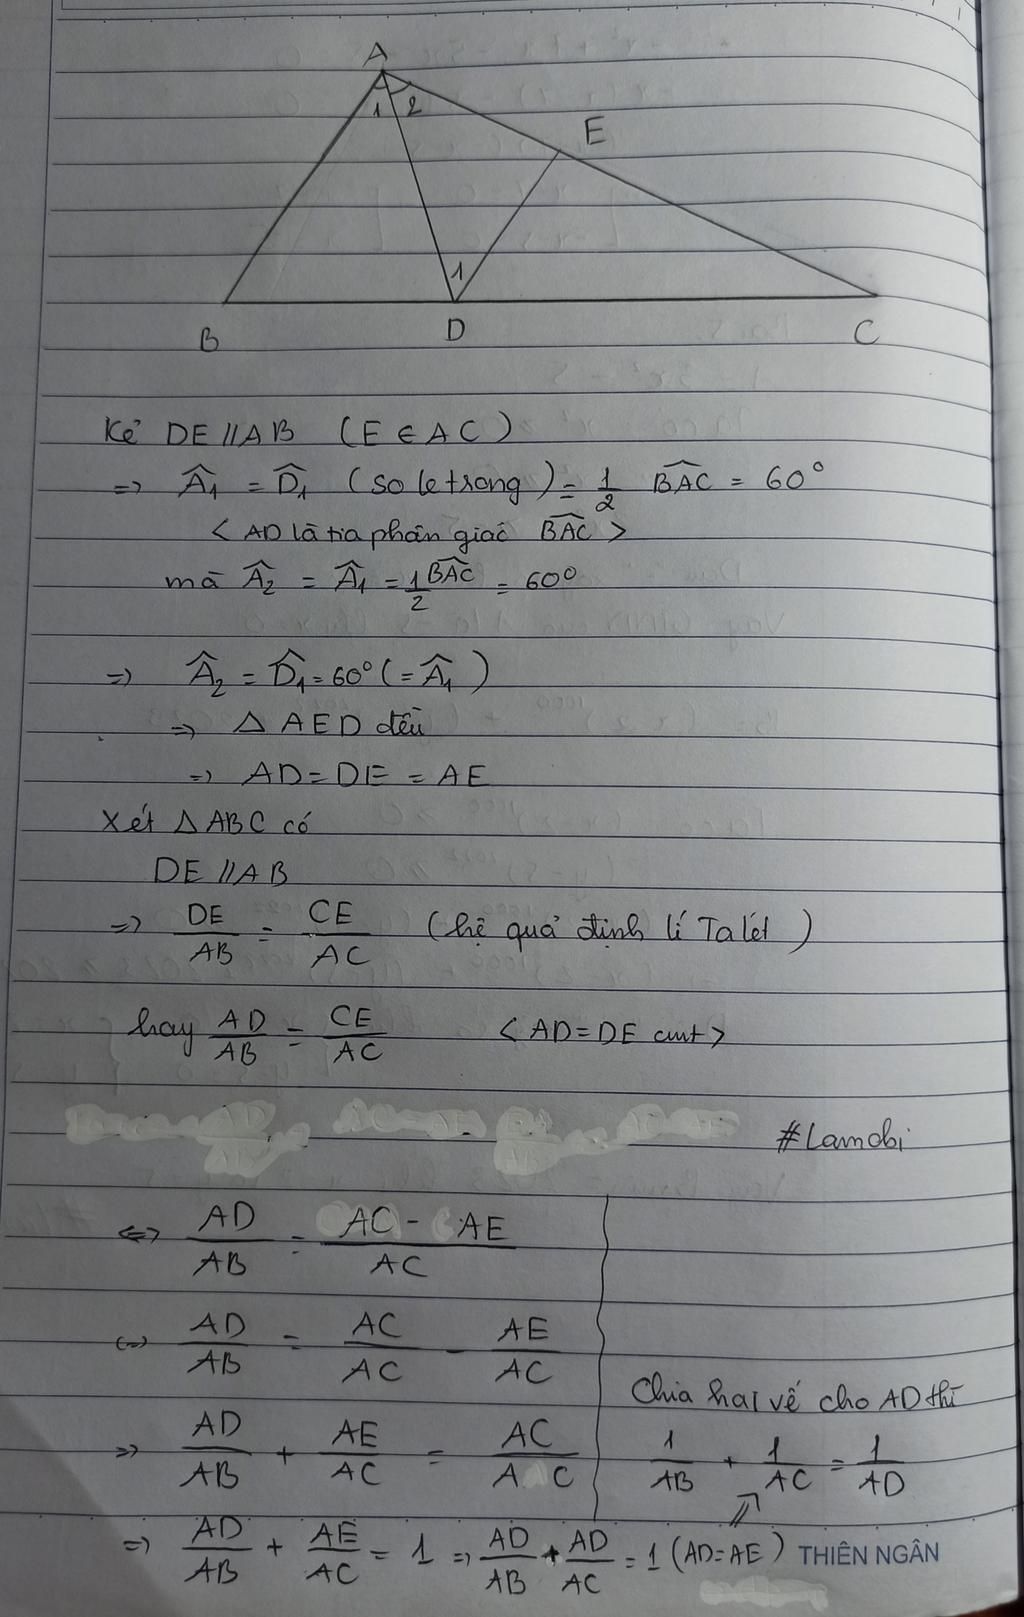 A
1 2
E
1
B D C
Kẻ DE // AB (E ∈ AC)
=> Â₁ = D̂₁ (so le trong) = 1/2 BAC = 60°
< AD là tia phân giác BAC >
mà Â₂ = Â₁ = 1/2 BAC = 60°
=> Â₂ = D̂₁ = 60° (= Â₁)
=> Δ AED đều
=> AD = DE = AE
Xét Δ ABC có
DE // AB
=> DE/AB = CE/AC (hệ quả định lí Talét)
hay AD/AB = CE/AC < AD = DE cmt >
#Lamobi
<=> AD/AB = (AC - AE)/AC
<=> AD/AB = AC/AC - AE/AC
=> AD/AB + AE/AC = AC/AC
=> AD/AB + AE/AC = 1 => AD/AB + AD/AC = 1 (AD = AE)
Chia hai vế cho AD thì
1/AB + 1/AC = 1/AD
THIÊN NGÂN